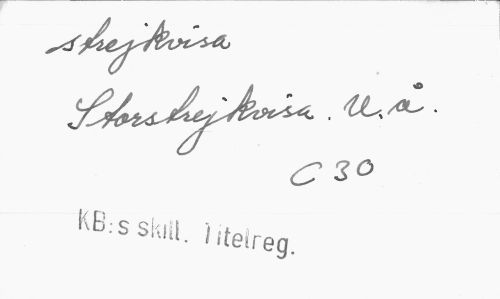 strejkvisa
Storstrejkvisa. U.å.
C 30
KB:s skill. Titelreg.